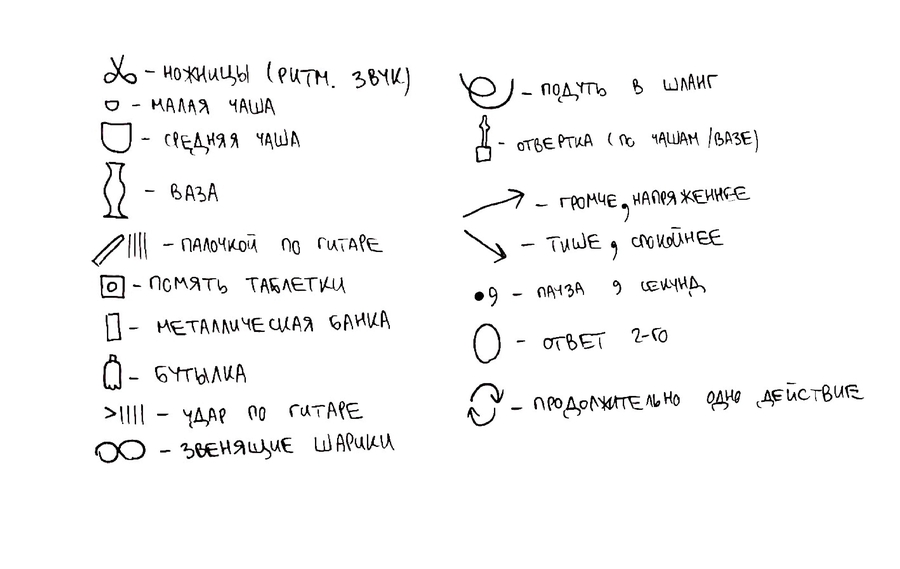 - НОЖНИЦЫ (РИТМ. ЗВУК)
- МАЛАЯ ЧАША
- СРЕДНЯЯ ЧАША
- ВАЗА
- ПАЛОЧКОЙ ПО ГИТАРЕ
- ПОМЯТЬ ТАБЛЕТКИ
- МЕТАЛЛИЧЕСКАЯ БАНКА
- БУТЫЛКА
- УДАР ПО ГИТАРЕ
- ЗВЕНЯЩИЕ ШАРИКИ
- ПОДУТЬ В ШЛАНГ
- ОТВЕРТКА (ПО ЧАШАМ/ВАЗЕ)
- ГРОМЧЕ, НАПРЯЖЕННЕЕ
- ТИШЕ, СПОКОЙНЕЕ
•9 - ПАУЗА 9 СЕКУНД
- ОТВЕТ 2-ГО
- ПРОДОЛЖИТЕЛЬНО ОДНО ДЕЙСТВИЕ